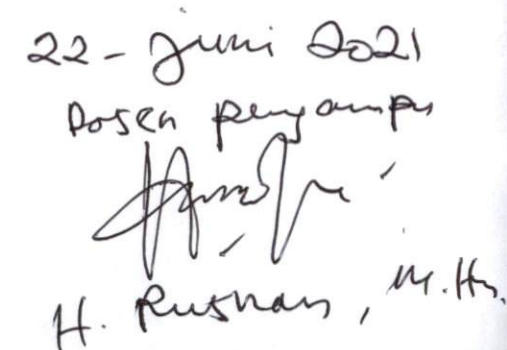 22-Juni 2021
Dosen pengampu
H. Rusnan, M.Hs.